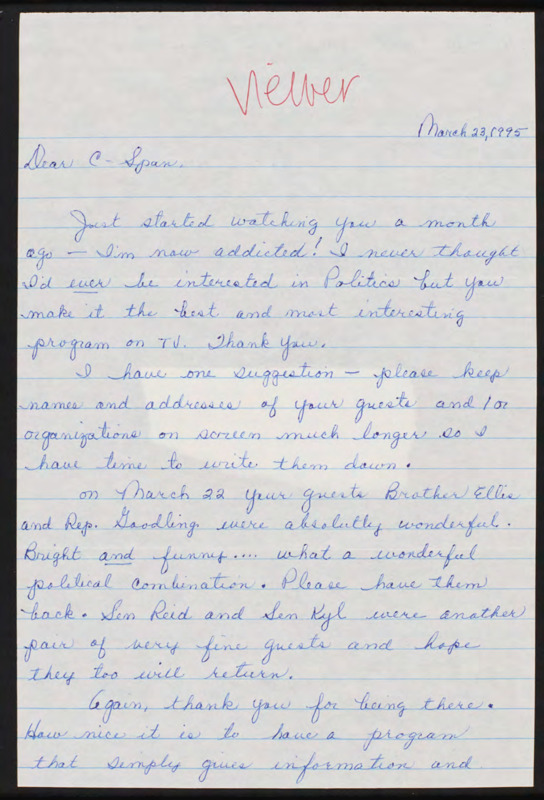 Viewer
March 23, 1995
Dear C-Span,
Just started watching you a month
ago — I'm now addicted! I never thought
I'd ever be interested in Politics but you
make it the best and most interesting
program on TV. Thank You.
I have one suggestion — please keep
names and addresses of your guests and/or
organizations on screen much longer so I
have time to write them down.
on March 22 your guests Brother Ellis
and Rep. Goodling were absolutly wonderful.
Bright and funny.... what a wonderful
political combination. Please have them
back. Sen Reid and Sen Kyl were another
pair of very fine guests and hope
they too will return.
Again, thank you for being there.
How nice it is to have a program
that simply gives information and